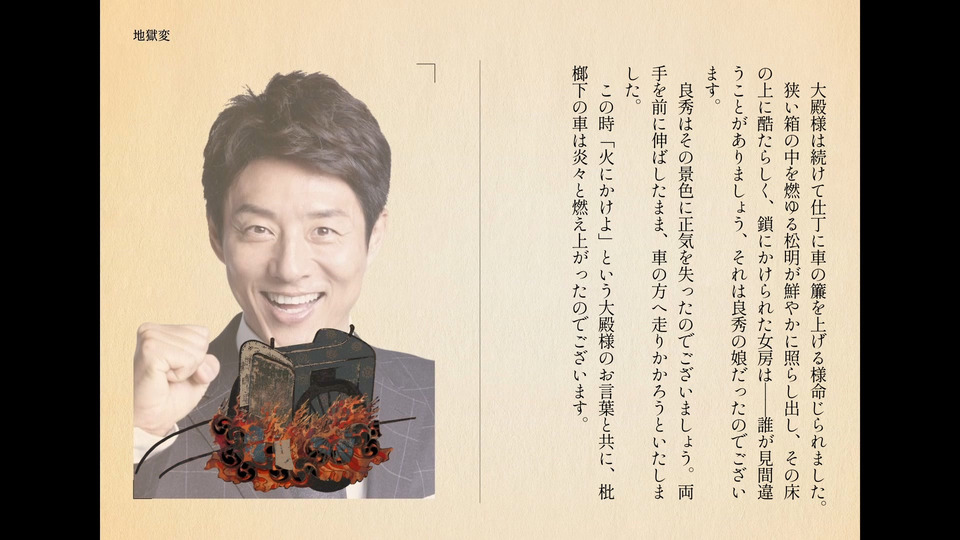 地獄変
大殿様は続けて仕丁に車の簾を上げる様命じられました。
狭い箱の中を燃ゆる松明が鮮やかに照らし出し、その床
の上に酷たらしく、鎖にかけられた女房は――誰が見間違
うことがありましょう、それは良秀の娘だったのでござい
ます。
良秀はその景色に正気を失ったのでございましょう。両
手を前に伸ばしたまま、車の方へ走りかかろうといたしま
した。
この時「火にかけよ」という大殿様のお言葉と共に、枇
榔下の車は炎々と燃え上がったのでございます。